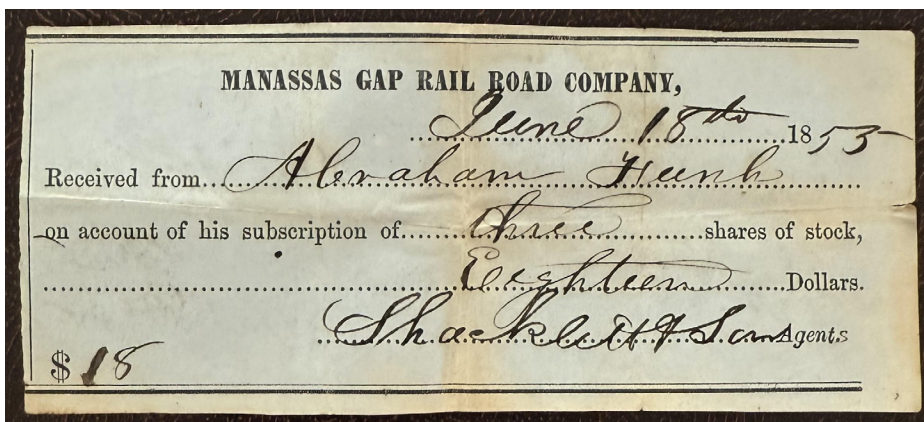 MANASSAS GAP RAIL ROAD COMPANY,
June 18th 1853
Received from Abraham Funk
on account of his subscription of three shares of stock,
Eighteen Dollars.
Shacklett & Son Agents
$ 18